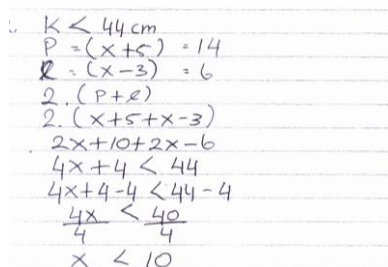 K < 44 cm
P = (x+5) = 14
l = (x-3) = 6
2. (P+l)
2. (x+5+x-3)
2x+10+2x-6
4x+4 < 44
4x+4-4 < 44-4
4x/4 < 40/4
x < 10